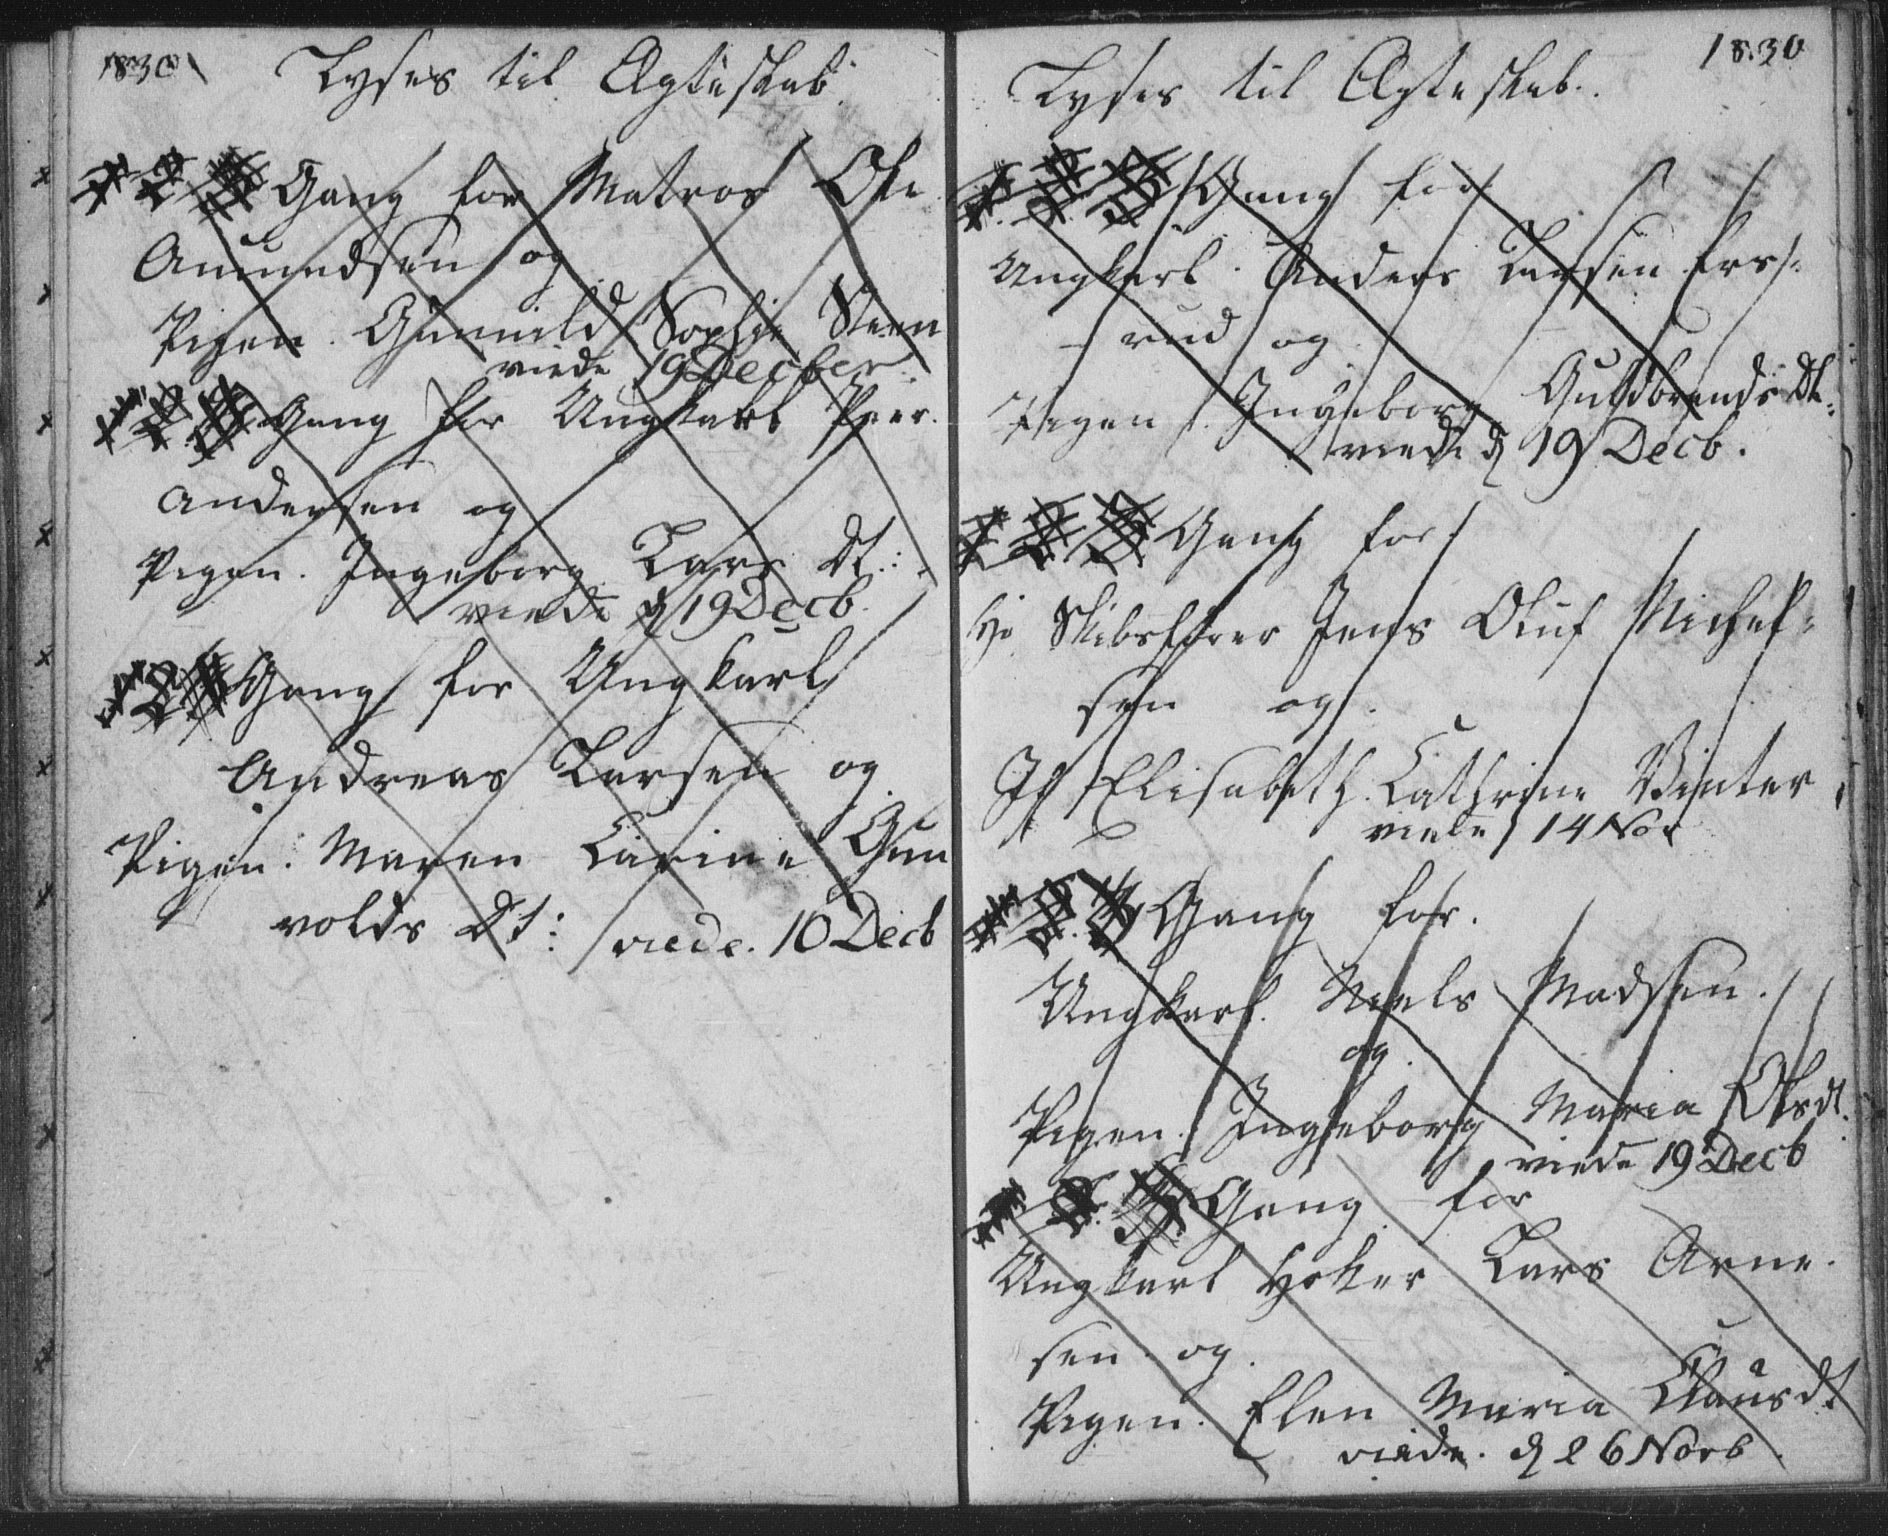 1830
Lyses til Ægteskab
1 2 3 Gang for Matros Ole
Amundsen og
Pigen Gunnild Sophie Steen
viede 19 Decber.
1 2 3 Gang for Ungkarl Peer
Andersen og
Pigen. Ingeborg Lars Dt:
viede d 19 Decb.
1 2 3 Gang for Ungkarl
Andreas Larsen og
Pigen. Maren Carine Gun
volds Dt: viede. 10 Decb
1830
Lyses til Ægteskab.
1. 2. 3 Gang for
Ungkarl. Anders Larsen
rud og
Pigen. Ingeborg Guldbrands Dt.
viede d 19 Decb.
1 2 3 Gang for
Hr Skibsfører Jens Oluf Michel-
sen og.
Jf Elisabeth Cathrine Winter
viede 14 Nov
1 2. 3 Gang for.
Ungkarl. Niels Madsen.
og.
Pigen. Ingeborg Maria Olsdt.
viede 19 Decb
1 2. 3. Gang for
Ungkarl Høker Lars Arne.
sen. og.
Pigen. Elen Maria Clausdt
viede. d 26 Novb.